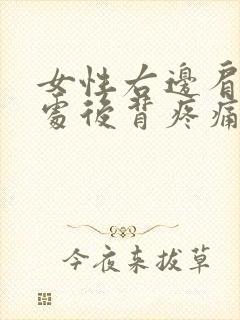 女性右邊肩
處後背疼痛
今夜来拔草